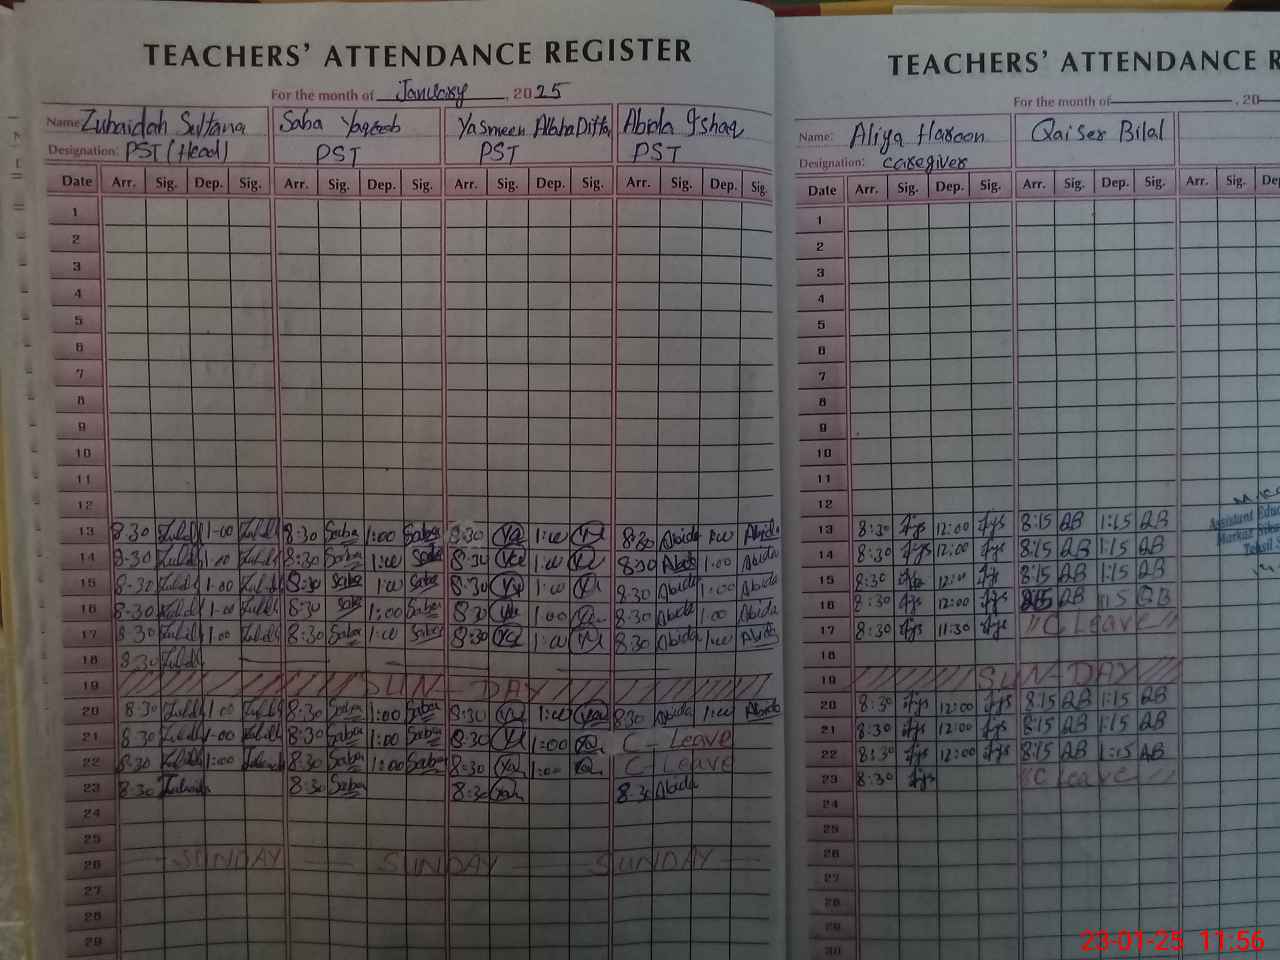 TEACHERS' ATTENDANCE REGISTER
For the month of January, 2025
Name: Zubaidah Sultana Saba Yaqoob Yasmeen Allaha Ditta Abida Ishaq
Designation: PST (Head) PST PST PST
Date Arr. Sig. Dep. Sig. Arr. Sig. Dep. Sig. Arr. Sig. Dep. Sig. Arr. Sig. Dep. Sig.
1
2
3
4
5
6
7
8
9
10
11
12
13 8:30 1-00 8:30 Saba 1:00 Saba 8:30 1:00 8:30 Abida 1:00 Abida
14 8-30 1-00 8:30 Saba 1:00 Saba 8:30 1:00 8:30 Abida 1:00 Abida
15 8-30 1-00 8:30 Saba 1:00 Saba 8:30 1:00 8:30 Abida 1:00 Abida
16 8-30 1-00 8:30 Saba 1:00 Saba 8:30 1:00 8:30 Abida 1:00 Abida
17 8-30 1-00 8:30 Saba 1:00 Saba 8:30 1:00 8:30 Abida 1:00 Abida
18 8-30
19 SUN-DAY
20 8:30 1-00 8:30 Saba 1:00 Saba 8:30 1:00 8:30 Abida 1:00 Abida
21 8:30 1-00 8:30 Saba 1:00 Saba 8:30 1:00 C-Leave
22 8:30 1:00 8:30 Saba 1:00 Saba 8:30 1:00 C-Leave
23 8:30 8:30 Saba 8:30 8:30 Abida
24
25
26 SUNDAY SUNDAY SUNDAY
27
28
29
TEACHERS' ATTENDANCE R
For the month of , 20
Name: Aliya Haroon Qaiser Bilal
Designation: caregiver
Date Arr. Sig. Dep. Sig. Arr. Sig. Dep. Sig. Arr. Sig. Dep
1
2
3
4
5
6
7
8
9
10
11
12
13 8:30 12:00 8:15 QB 1:15 QB
14 8:30 12:00 8:15 QB 1:15 QB
15 8:30 12:00 8:15 QB 1:15 QB
16 8:30 12:00 8:15 QB 1:15 QB
17 8:30 11:30 "C Leave"
18
19 SUN-DAY
20 8:30 12:00 8:15 QB 1:15 QB
21 8:30 12:00 8:15 QB 1:15 QB
22 8:30 12:00 8:15 QB 1:15 QB
23 8:30 "C Leave"
24
25
26
27
28
29
30
Assistant Educ
Markaz
Tehsil S
23-01-25 11:56